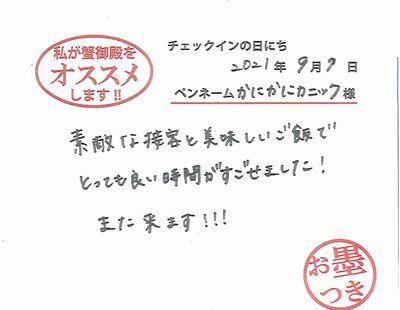 私が蟹御殿を
オススメ
します!!
チェックインの日にち
2021年 9月7日
ペンネームかにかにカニック様
素敵な接客と美味しいご飯で
とっても良い時間がすごせました!
また来ます!!!
お墨
つき